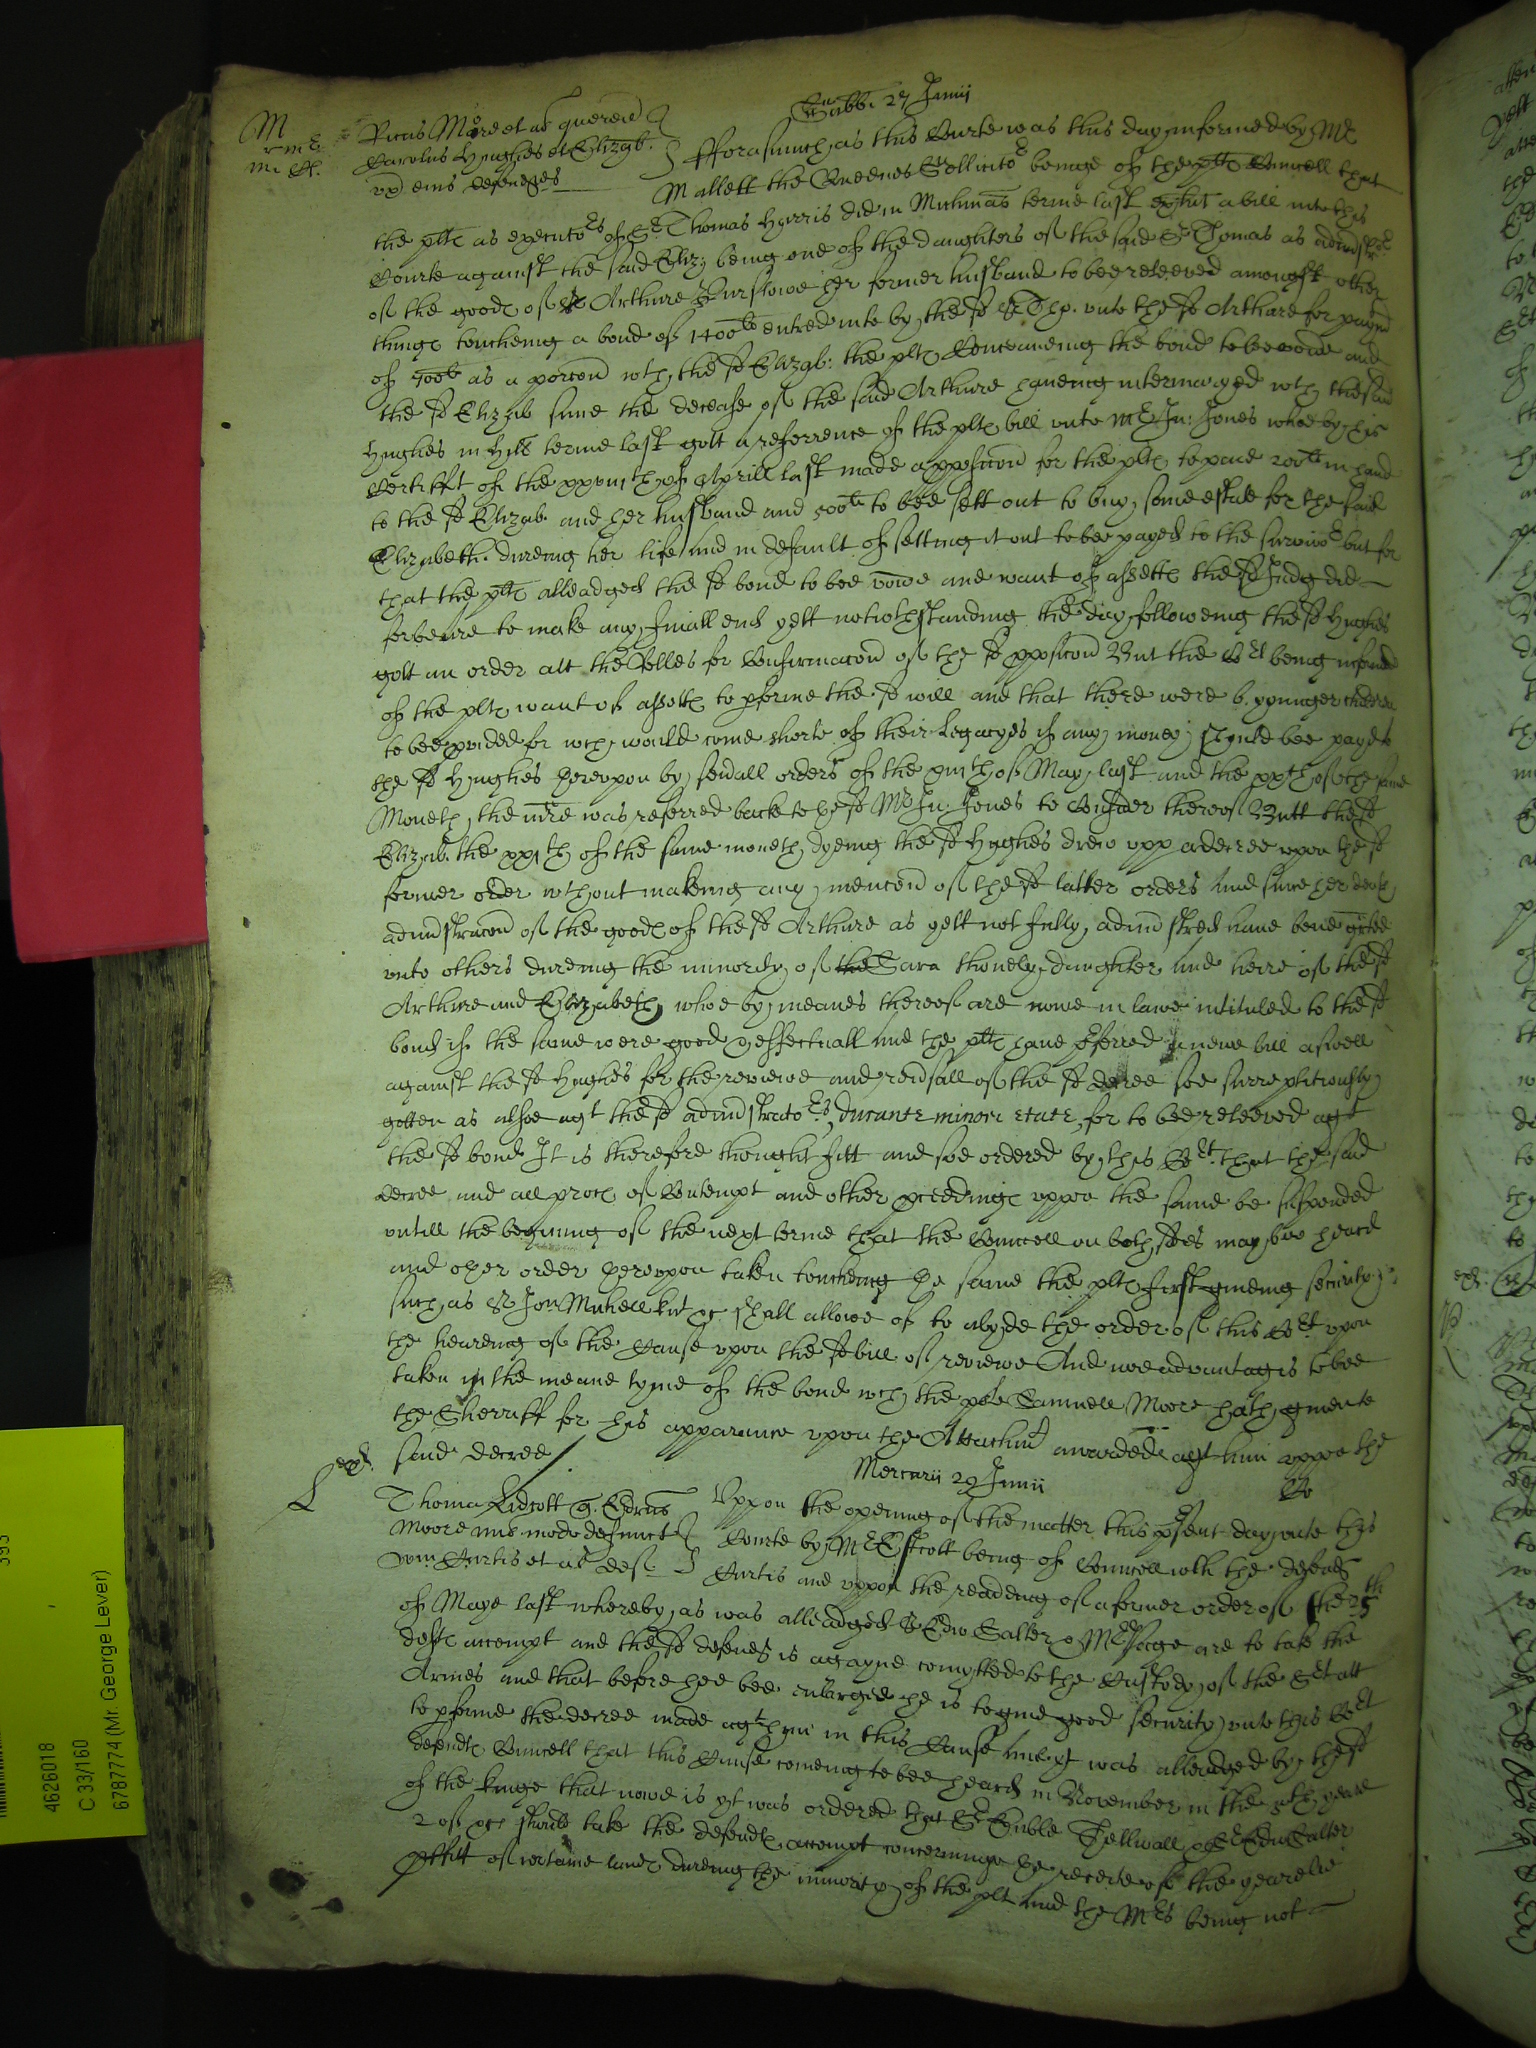 Sabbi 27 Junii
M
Ricus More et al quereñ
Carolus Hughes et Elizab.
ux eius defendtes
fforasmuch as this Courte was this day informed by Mr
Mallett the Queenes Sollicitor beinge of the plts Councell that
the plts as executors of Sr Thomas Harris did in Michmas terme last exhit a bill into this
Courte against the said Eliz; being one of the daughters of the said Sr Thomas as admistrix
of the goods of Arthure Burslowe her former husband to bee releeved amongst other
things toucheing a bond of 1400li entred into by the sd Sr Tho. unto the sd Arthure for paymt
of 700li as a porcon wth the sd Elizab: the plts Conceaveing the bond to bee voide and
the sd Elizab since the decease of the said Arthure haveing intermaryed wth the said
Hughes in Hill terme last gott a referrence of the plts bill unto Mr Ju: Jones whoe by his
Certifft of the xxviith of Aprill last made apposicon for the plts to paie 200li in hand
to the sd Elizab. and her husband and 500li to bee sett out to buy some estate for the said
Elizabeth dureing her life and in default of setting it out to bee payed to the survivor but for
that the plts alleadged the sd bond to bee voide and want of assetts the sd Judg did
forbeare to make any finall end yett notwthstanding the day followeing the sd Hughes
gott an order att the Rolles for Confirmacon of the sd pposicon But the Cort being informed
of the plts want of assetts to pforme the sd will and that there were 6. younger children
to bee pvided for wch would come shorte of their Legacyes if any money should bee payd to
the sd Hughes hereupon by severall orders of the xiiith of May last and the xxth of the same
Moneth the matter was referred back to the sd Mr Ju: Jones to Consider thereof Butt the sd
Elizab. the xxith of the same moneth dyeing the sd Hughes drew upp a decree upon the sd
former order wthout makeing any mencon of the sd latter orders And since her death
admistracon of the goods of the sd Arthure as yett not fully admistred have bene grted
unto others dureing the minority of Sara thonely daughter and heire of the sd
Arthure and Elizabeth whoe by meanes thereof are nowe in lawe intituled to the sd
bond if the same were good & effectuall and the plts have pferred a newe bill aswell
against the sd Hughes for the reviewe and reversall of the sd decree soe surreptitiously
gotten as alsoe agt the sd admistrators, durante minori etate, for to bee releeved agt
the sd bond It is therefore thought fitt and soe ordered by this Cort that the said
decree and all proces of Contempt and other pceedings uppon the same be suspended
untill the begining of the next terme that the Councell on both sides may bee heard
and other order hereupon taken toucheing the same the plts first giveing security
such as Sr Jon Michell knt &c shall allowe of to abyde the order of this Cort upon
the heareing of the Cause upon the sd bill of reviewe And noe advantage is to bee
taken in the meane tyme of the bond wch the plt Samuell Moore hath given to
the Sherriff for his apparance upon the Attachmt awarded agt him uppon the
said decree
Mercurii 29 Junii
L
Thoma Lidcott g. Edrus
Moore mil modo defunct
Willm Curtis et al def
Uppon the opening of the matter this psent day unto this
Courte by Mr Estcott being of Councell with the defendt
Curtis and uppon the readding of a former order of the 25th
of Maye last whereby, as was alleadged Sr Edw Salter & Mr Page are to take the
defts accompt and the sd defendt is agayne comytted to the Custody of the Serjt att
Armes and that before hee bee enlarged he is to give good security unto this Cort
to pforme the decree made agt him in this Cause and yt was alleadged by the sd
defendts Councell that this Cause comeing to bee heard in November in the 5th yeare
of the kinge that nowe is yt was ordered that Sr Eubule Thellwall & Sr Edw Salter
2 of &c should take the defendts accompt concerninge the receite of the yearelie
pffitt of certaine lands dureing the minority of the plt and the Mrs being not
4626018
C 33/160
6787774 (Mr. George Lever)
393